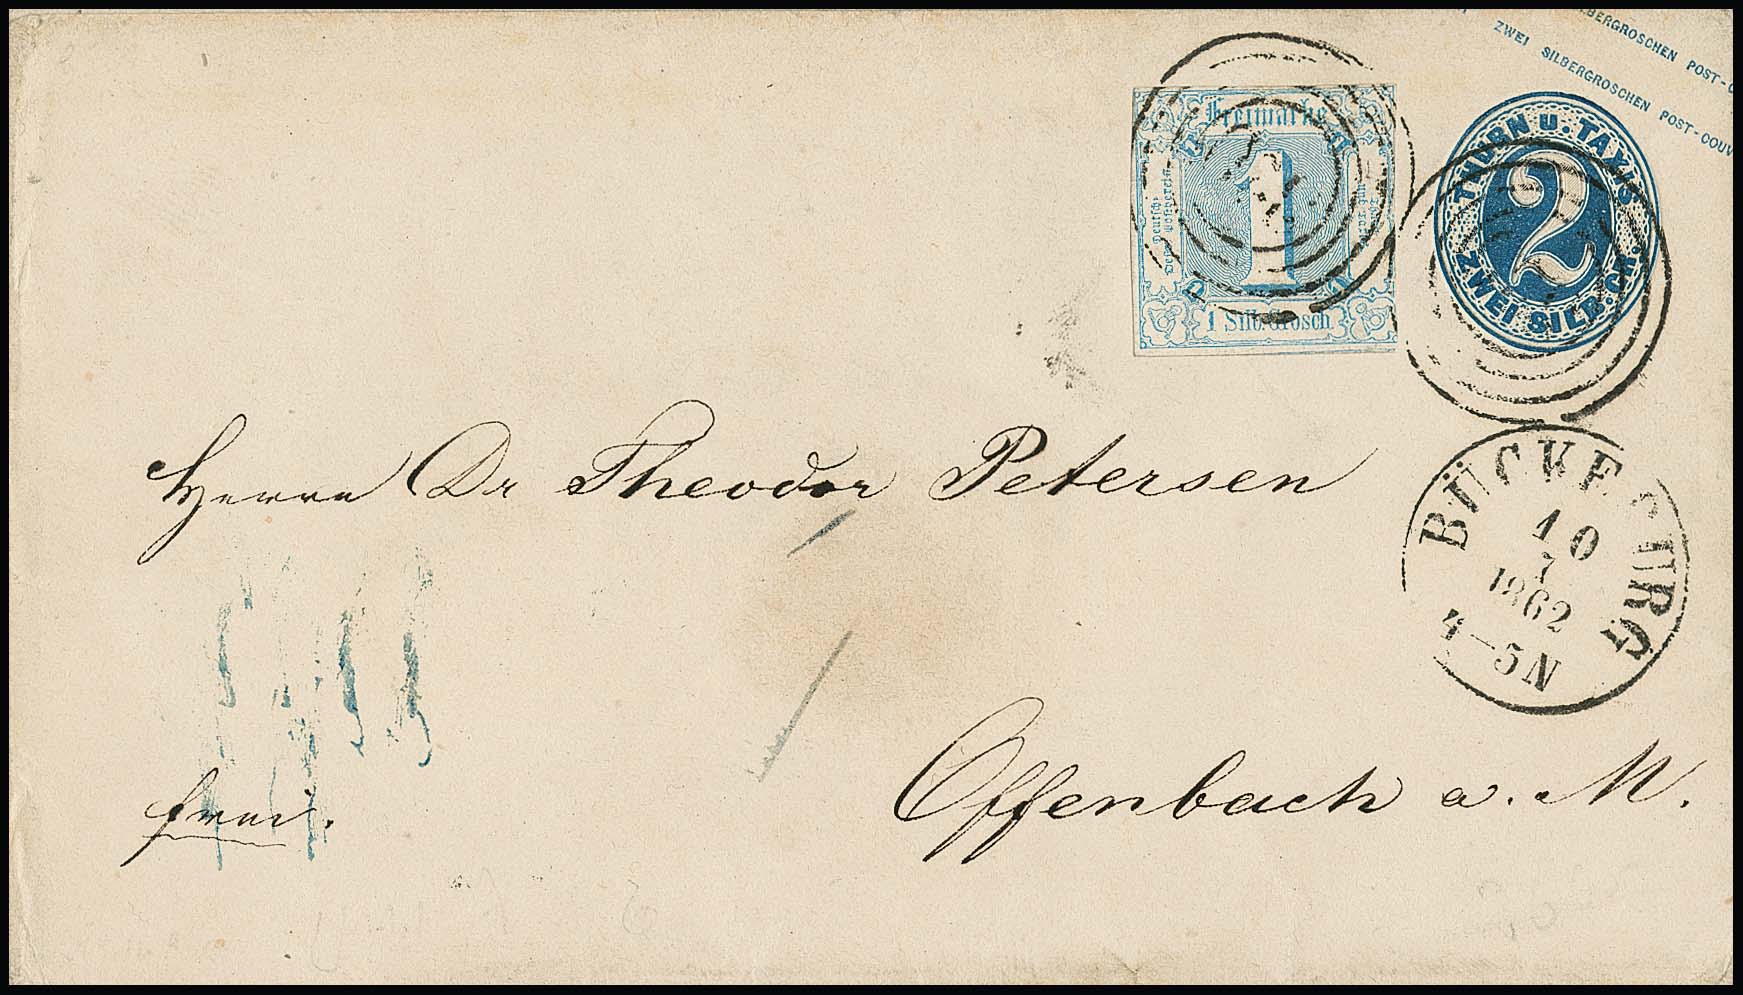 SILBERGROSCHEN POST-C
ZWEI SILBERGROSCHEN POST-COUV
Freimarke
Deutsch-
1
1 Silb. Grosch.
THURN U. TAXIS
2
ZWEI SILB. GR.
Herrn Dr Theodor Petersen
BÜCKEBURG
10
7
1862
4-5N
Offenbach a. M.
frei.